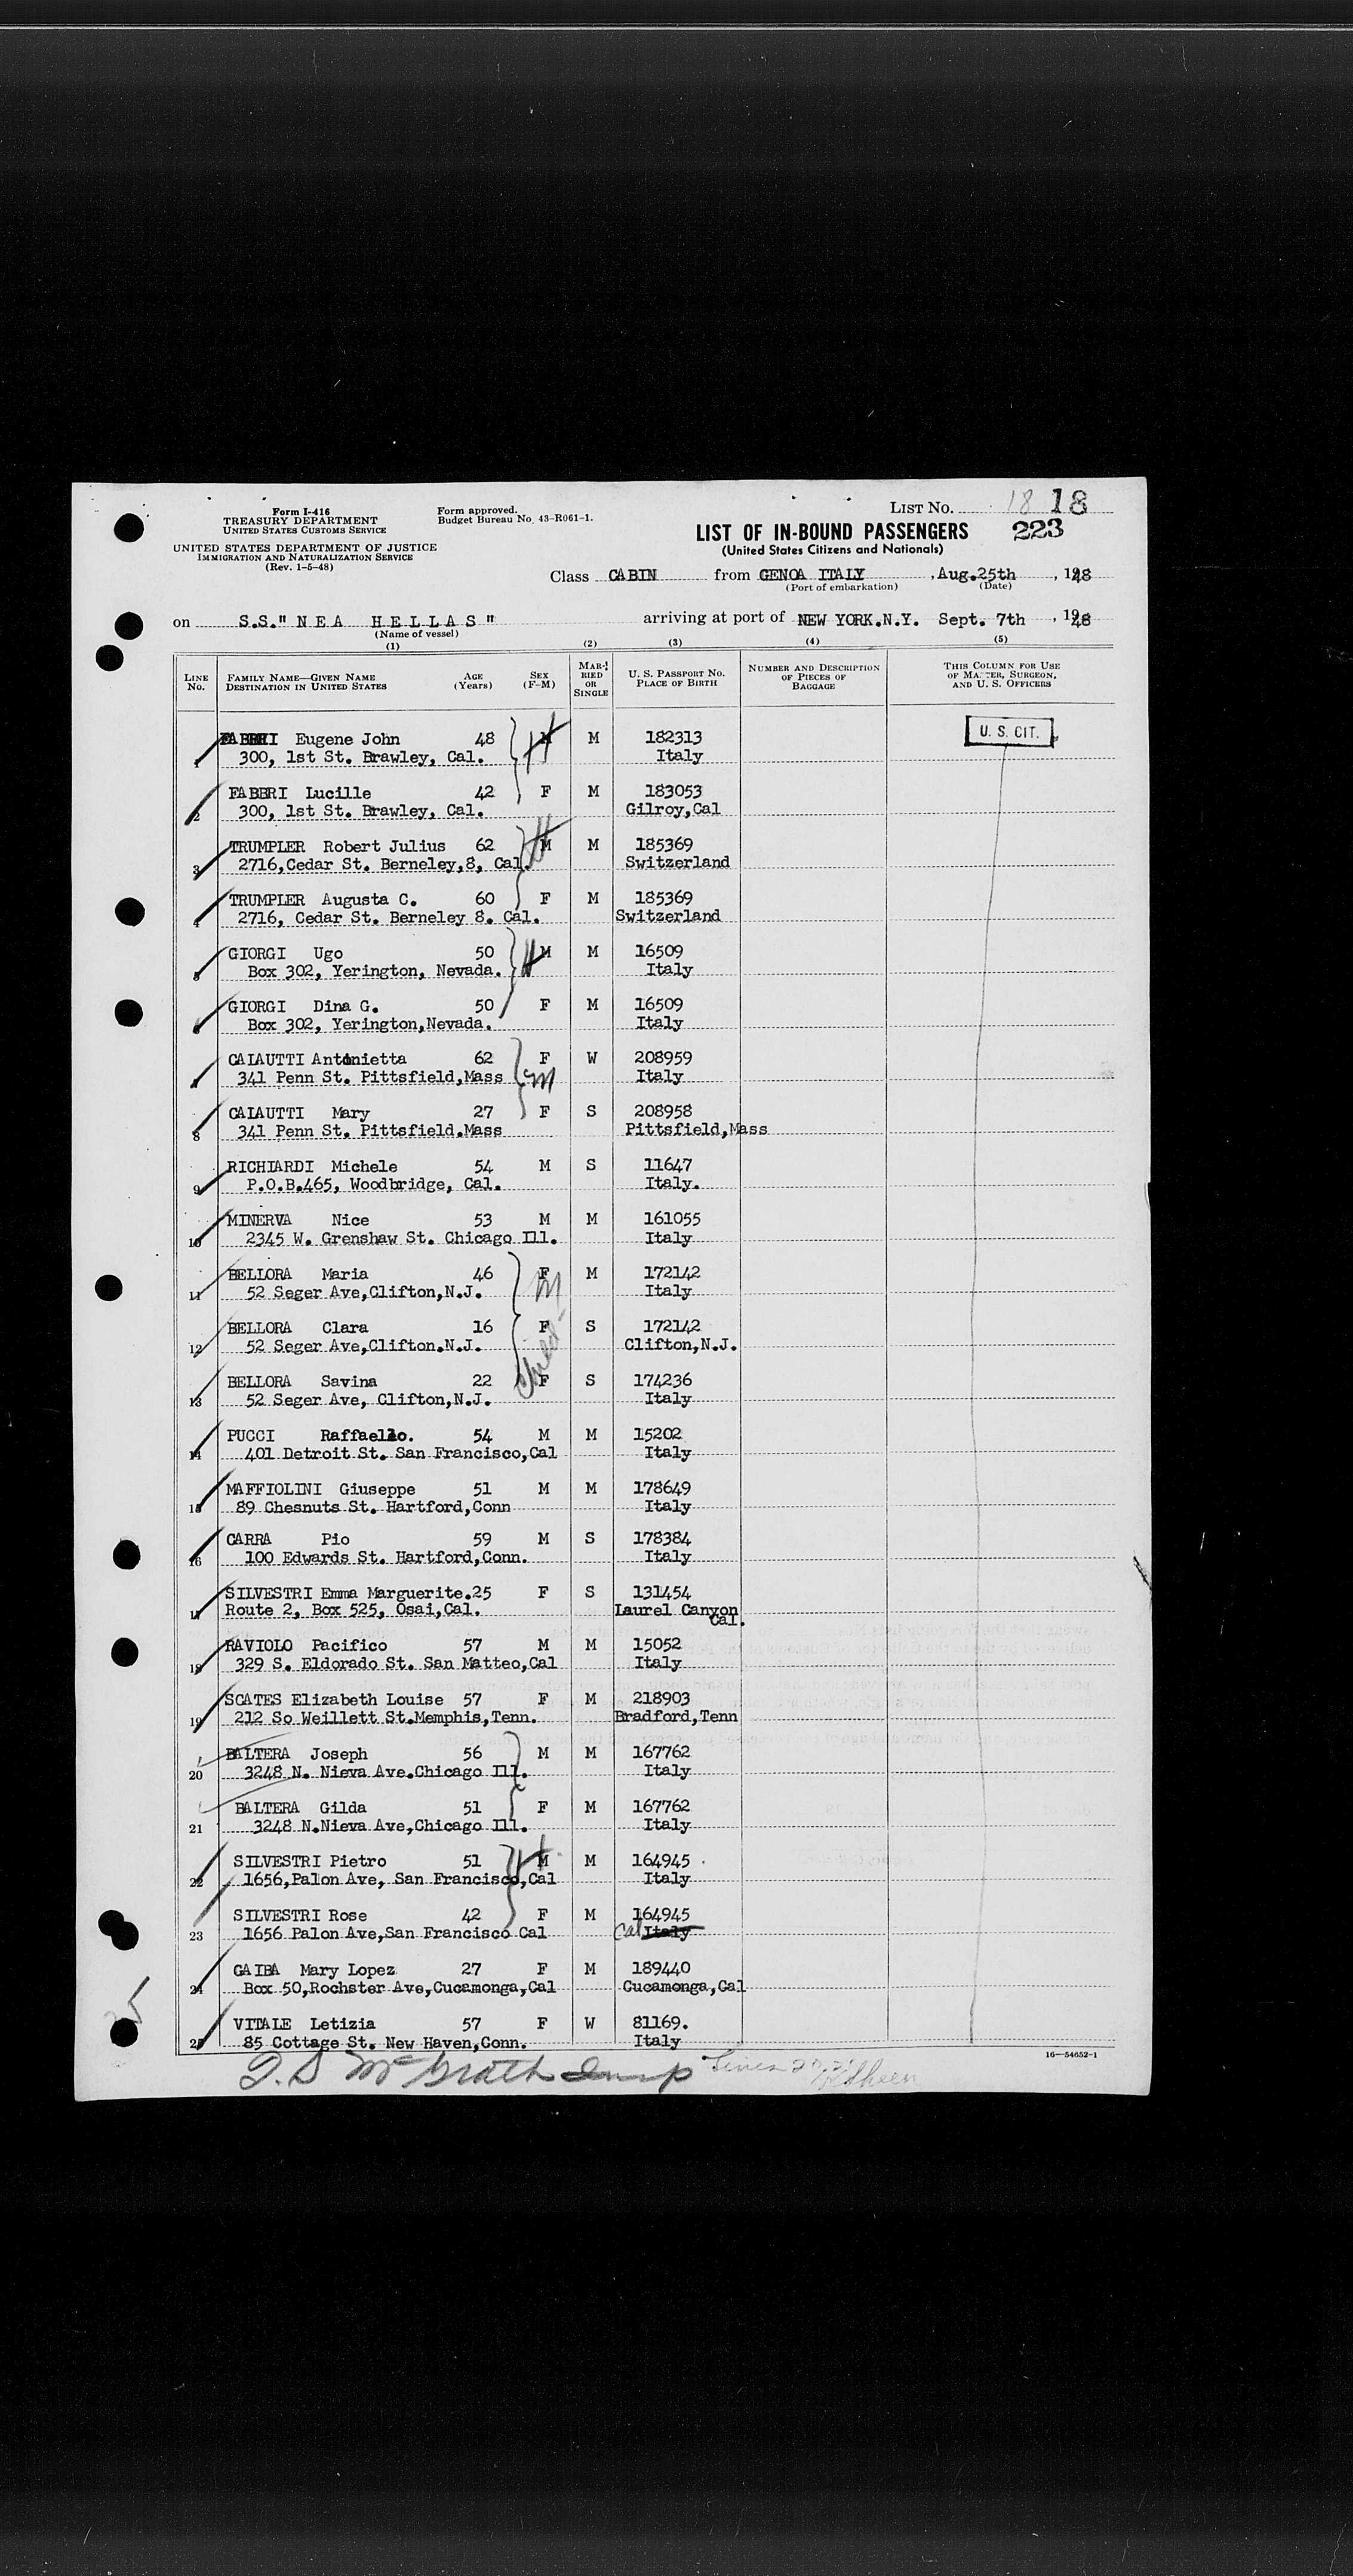 Form I-416
TREASURY DEPARTMENT
UNITED STATES CUSTOMS SERVICE
UNITED STATES DEPARTMENT OF JUSTICE
IMMIGRATION AND NATURALIZATION SERVICE
(Rev. 1-5-48)
Form approved.
Budget Bureau No. 43-R061-1.
LIST No. 18 18
LIST OF IN-BOUND PASSENGERS 223
(United States Citizens and Nationals)
Class CABIN from GENOA ITALY , Aug.25th , 1948
(Port of embarkation) (Date)
on S.S." N E A H E L L A S " arriving at port of NEW YORK.N.Y. Sept. 7th , 1948
(Name of vessel)
(1) (2) (3) (4) (5)
LINE No. FAMILY NAME—GIVEN NAME DESTINATION IN UNITED STATES AGE (Years) SEX (F-M) MARRIED OR SINGLE U. S. PASSPORT No. PLACE OF BIRTH NUMBER AND DESCRIPTION OF PIECES OF BAGGAGE THIS COLUMN FOR USE OF MASTER, SURGEON, AND U. S. OFFICERS
FABBRI Eugene John 48 M M 182313 U. S. CIT.
1 300, 1st St. Brawley, Cal. Italy
FABBRI Lucille 42 F M 183053
2 300, 1st St. Brawley, Cal. Gilroy,Cal
TRUMPLER Robert Julius 62 M M 185369
3 2716,Cedar St. Berneley,8, Cal. Switzerland
TRUMPLER Augusta C. 60 F M 185369
4 2716, Cedar St. Berneley 8. Cal. Switzerland
GIORGI Ugo 50 M M 16509
5 Box 302, Yerington, Nevada. Italy
GIORGI Dina G. 50 F M 16509
6 Box 302, Yerington,Nevada. Italy
CAIAUTTI Antonietta 62 F W 208959
7 341 Penn St. Pittsfield,Mass Italy
CAIAUTTI Mary 27 F S 208958
8 341 Penn St. Pittsfield.Mass Pittsfield,Mass
RICHIARDI Michele 54 M S 11647
9 P.O.B.465, Woodbridge, Cal. Italy.
MINERVA Nice 53 M M 161055
10 2345 W. Grenshaw St. Chicago Ill. Italy
BELLORA Maria 46 F M 172142
11 52 Seger Ave,Clifton,N.J. Italy
BELLORA Clara 16 F S 172142
12 52 Seger Ave,Clifton.N.J. Clifton,N.J.
BELLORA Savina 22 F S 174236
13 52 Seger Ave, Clifton,N.J. Italy
PUCCI Raffaello. 54 M M 15202
14 401 Detroit St. San Francisco,Cal Italy
MAFFIOLINI Giuseppe 51 M M 178649
15 89 Chesnuts St. Hartford,Conn Italy
CARRA Pio 59 M S 178384
16 100 Edwards St. Hartford,Conn. Italy
SILVESTRI Emma Marguerite.25 F S 131454
17 Route 2, Box 525, Osai,Cal. Laurel Canyon Cal.
RAVIOLO Pacifico 57 M M 15052
18 329 S. Eldorado St. San Matteo,Cal Italy
SCATES Elizabeth Louise 57 F M 218903
19 212 So Weillett St.Memphis,Tenn. Bradford,Tenn
BALTERA Joseph 56 M M 167762
20 3248 N. Nieva Ave.Chicago Ill. Italy
BALTERA Gilda 51 F M 167762
21 3248 N.Nieva Ave,Chicago Ill. Italy
SILVESTRI Pietro 51 M M 164945
22 1656,Palon Ave, San Francisco,Cal Italy
SILVESTRI Rose 42 F M 164945
23 1656 Palon Ave,San Francisco Cal Cal Italy
GAIBA Mary Lopez 27 F M 189440
24 Box 50,Rochster Ave,Cucamonga,Cal Cucamonga,Cal
VITALE Letizia 57 F W 81169.
25 85 Cottage St. New Haven,Conn. Italy
16—54652-1
McGrath Insp